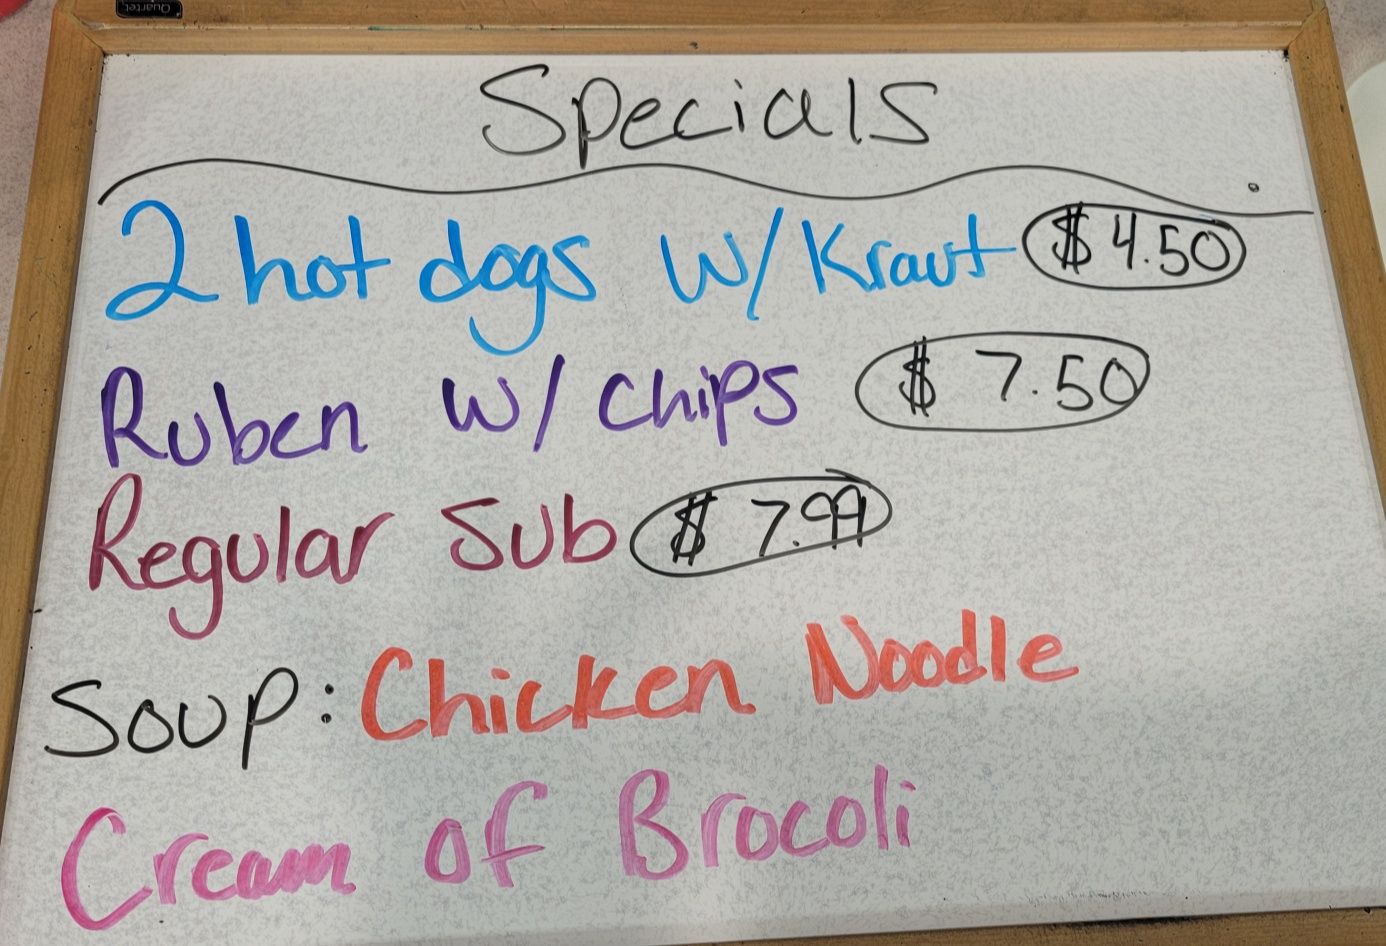 Quartet
Specials
2 hot dogs w/ Kraut $4.50
Ruben w/ chips $ 7.50
Regular Sub $ 7.99
Soup: Chicken Noodle
Cream of Brocoli